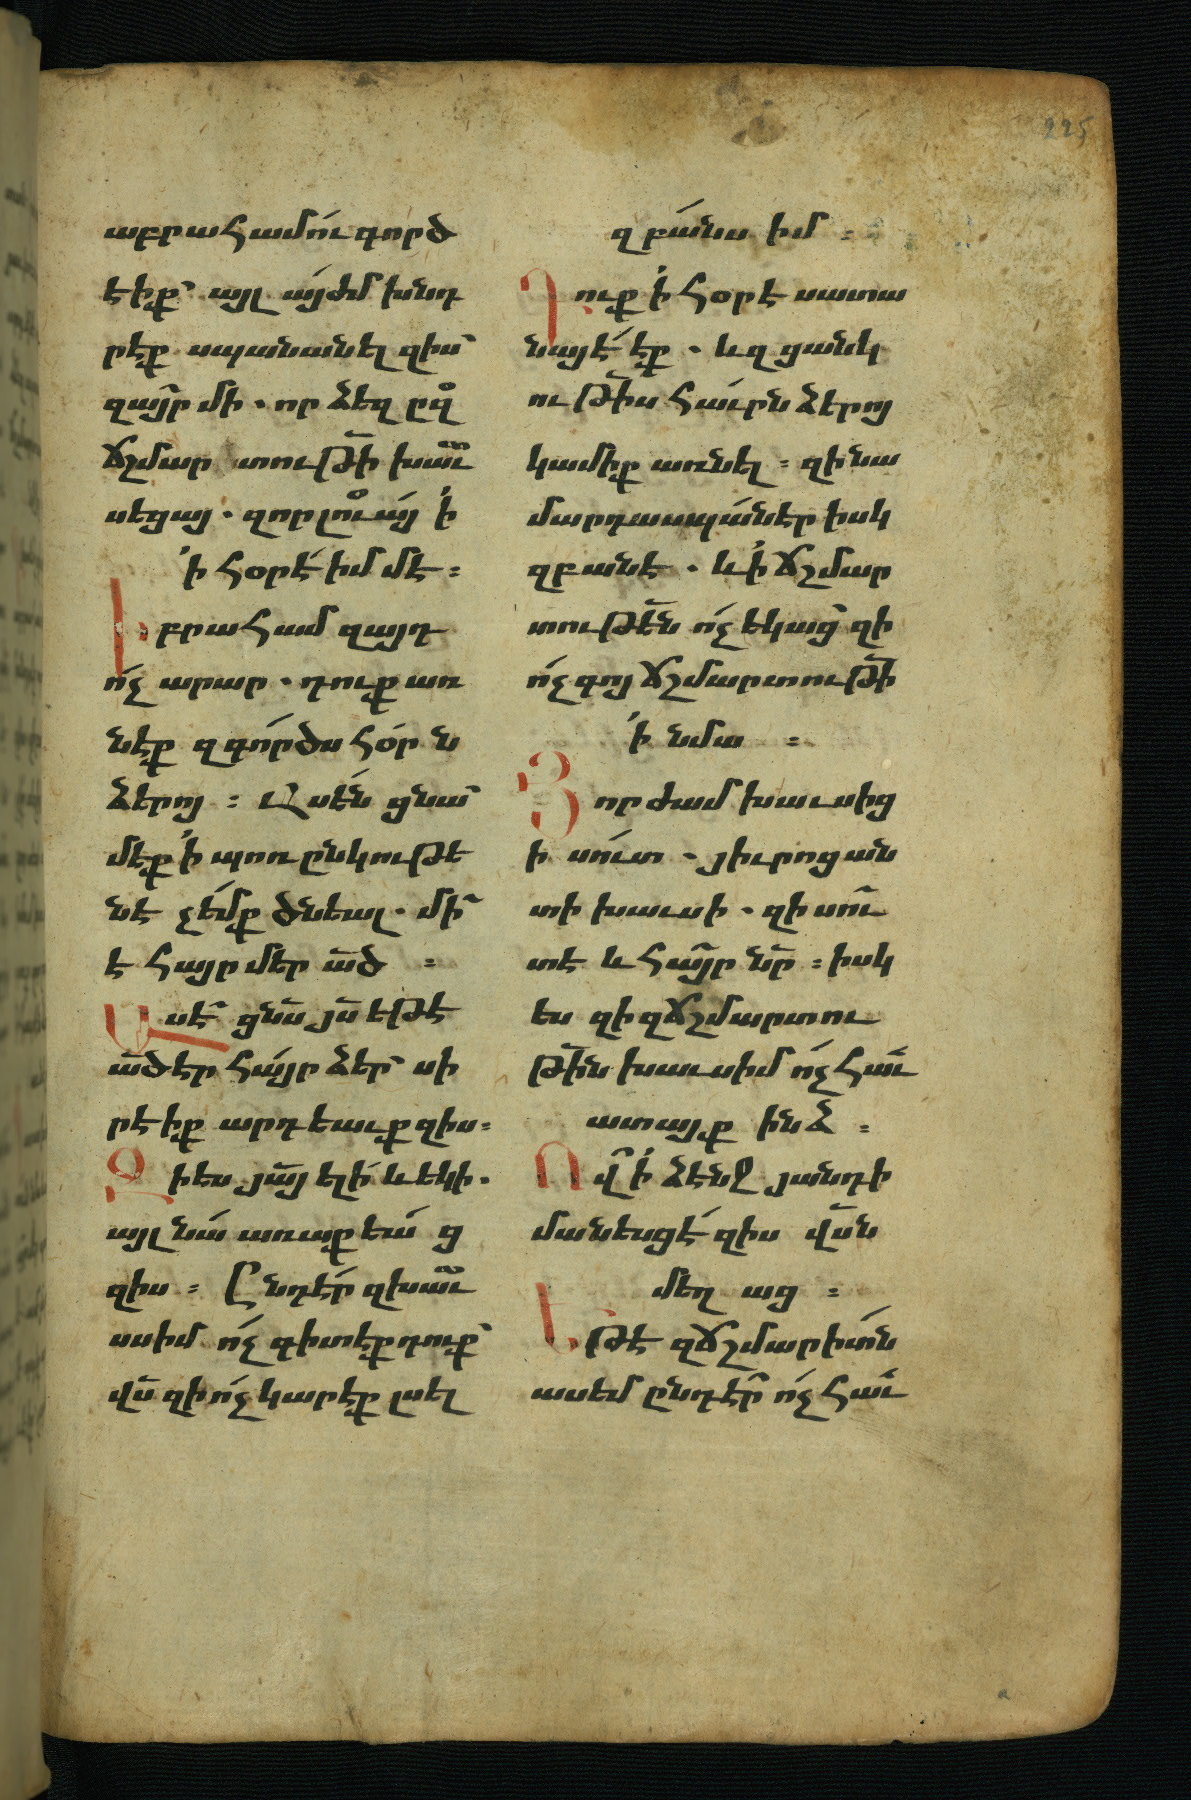 225
աբրահամու գործ
էիք՝ այլ այժմ խնդ
րէք սպանանել զիս՝
զայր մի . որ ձեզ ըզ
ճշմարտութի խաւ
սեցայ . զոր լուայ ի
ի հօրէ իմմէ :
Աբրահամ զայդ
ոչ արար . դուք առ
նէք զգործս հօր ն
ձերոյ : Ասեն ցնա՝
մեք ի պոռընկութե
նէ չեմք ծնեալ . մի՝
է հայր մեր ած :
Ասէ ցնս յս եթէ
ած էր հայր ձեր՝ սի
րէիք արդեաւք զիս :
Զի ես յայ ելի և եկի .
այլ նա առաքեա ց
զիս : Ընդէր զխաւ
սսիմ ոչ գիտէք դուք՝
վս զի ոչ կարէք լսել
զբանս իմ :
Դուք ի հօրէ սատա
նայէ էք . և զցանկ
ութիս հաւրն ձերոյ
կամիք առնել : զի նա
մարդասպաներ իսկ
զբանէ . և ի ճշմար
տութեն ոչ եկաց՝ զի
ոչ գոյ ճշմարտութի
ի նմա :
Յորժամ խաւսից
ի սուտ . յիւրոց ան
տի խաւսի . զի սու
տէ և հայր նր : իսկ
ես զի զճշմարտու
թին խաւսիմ ոչ հաւ
ատայք ինձ :
Ով ի ձենջ յանդի
մանեսցէ զիս վսն
մեղ աց :
Եթէ զճշմարիտն
ասեմ ընդէր ոչ հաւ